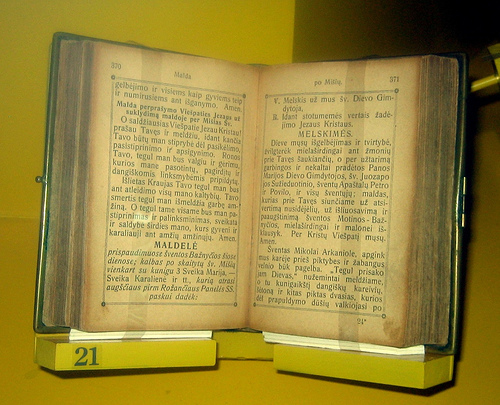 370
Malda
gelbėjimo ir visiems kaip gyviems teip
ir numirusiems ant išganymo. Amen.
Malda perprašymo Viešpaties Jezaus už
suklydimą maldoje per Mišias Šv.
O saldžiausias Viešpatie Jezau Kristau!
prašau Tavęs ir meldžiu, idant kančia
Tavo būtų man stiprybė dėl pasikėlimo,
pasistiprinimo ir apsigynimo. Ronos
Tavo, tegul man bus valgiu ir gėrimu,
kuriuo mane pasotintų, pagirdytų ir
dangiškomis linksmybėmis pripildytų.
Išlietas Kraujas Tavo tegul man bus
ant atleidimo visų mano kaltybių. Tavo
smertis tegul man išmeldžia garbę am-
žiną. O tegul tame visame bus man pa-
stiprinimas ir palinksminimas, sveikata
ir saldybė širdies mano, kurs gyveni ir
karaliauji ant amžių amžinąjų. Amen.
MALDELĖ
prispaudimuose šventos Bažnyčios šiose
dienose; kalbas po skaitytų šv. Mišių
vienkart su kunigu 3 Sveika Marija, —
Sveika Karalienė ir tt., kurią atrasi
augščiaus pirm Rožančiaus Panelės SS.
paskui dadėk:
po Mišių.
371
V. Melskis už mus šv. Dievo Gim-
dytoja,
R. Idant stotumemės vertais žadė-
jimo Jezaus Kristaus.
MELSKIMĖS.
Dieve mūsų išgelbėjimas ir tvirtybė,
žvilgterėk mielaširdingai ant žmonių
prie Tavęs šaukiančių, o per užtarimą
garbingos ir nekaltai pradėtos Panos
Marijos Dievo Gimdytojos, šv. Juozapo
jos Sužieduotinio, šventų Apaštalų Petro
ir Povilo, ir visų šventųjų; maldas,
kurias prie Tavęs siunčiame už atsi-
vertimą nusidėjėlių, už išliuosavimą ir
paaugštinimą šventos Motinos- Baž-
nyčios, mielaširdingai ir malonei iš-
klausyk. Per Kristų Viešpatį mūsų.
Amen.
Šventas Mikolai Arkaniole, apgink
mus karėje prieš piktybes ir žabangus
velnio būk pagelba. „Tegul prisako
jam Dievas," nužemintai meldžiame,
o tu kunigaikšti dangiškų kareivių,
šėtoną ir kitas piktas dvasias, kurios
dėl prapuldymo dūšių valkiojasi po
24*
21